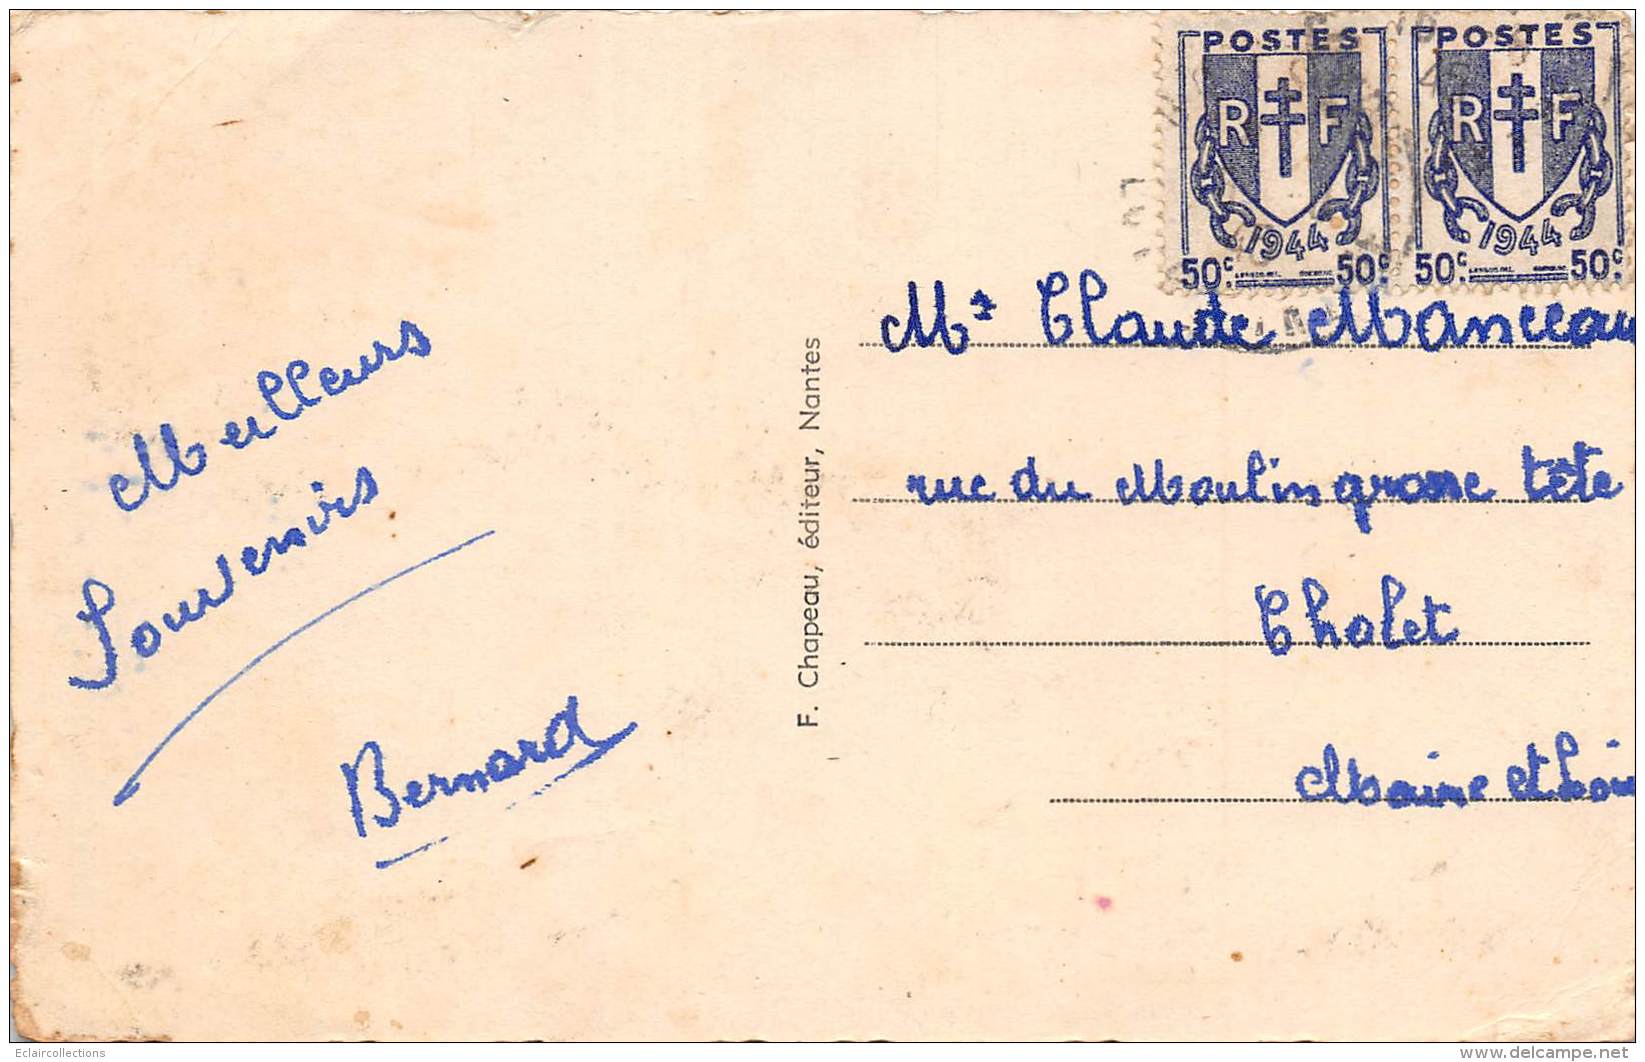 POSTES POSTES
R F R F
1944 1944
50c 50c 50c 50c
Meilleurs
Souvenirs
Bernard
F. Chapeau, éditeur, Nantes
Mr Claude Manceau
rue du Moulin grosse tête
Cholet
Maine et Loire
Eclaircollections
delcampe.net